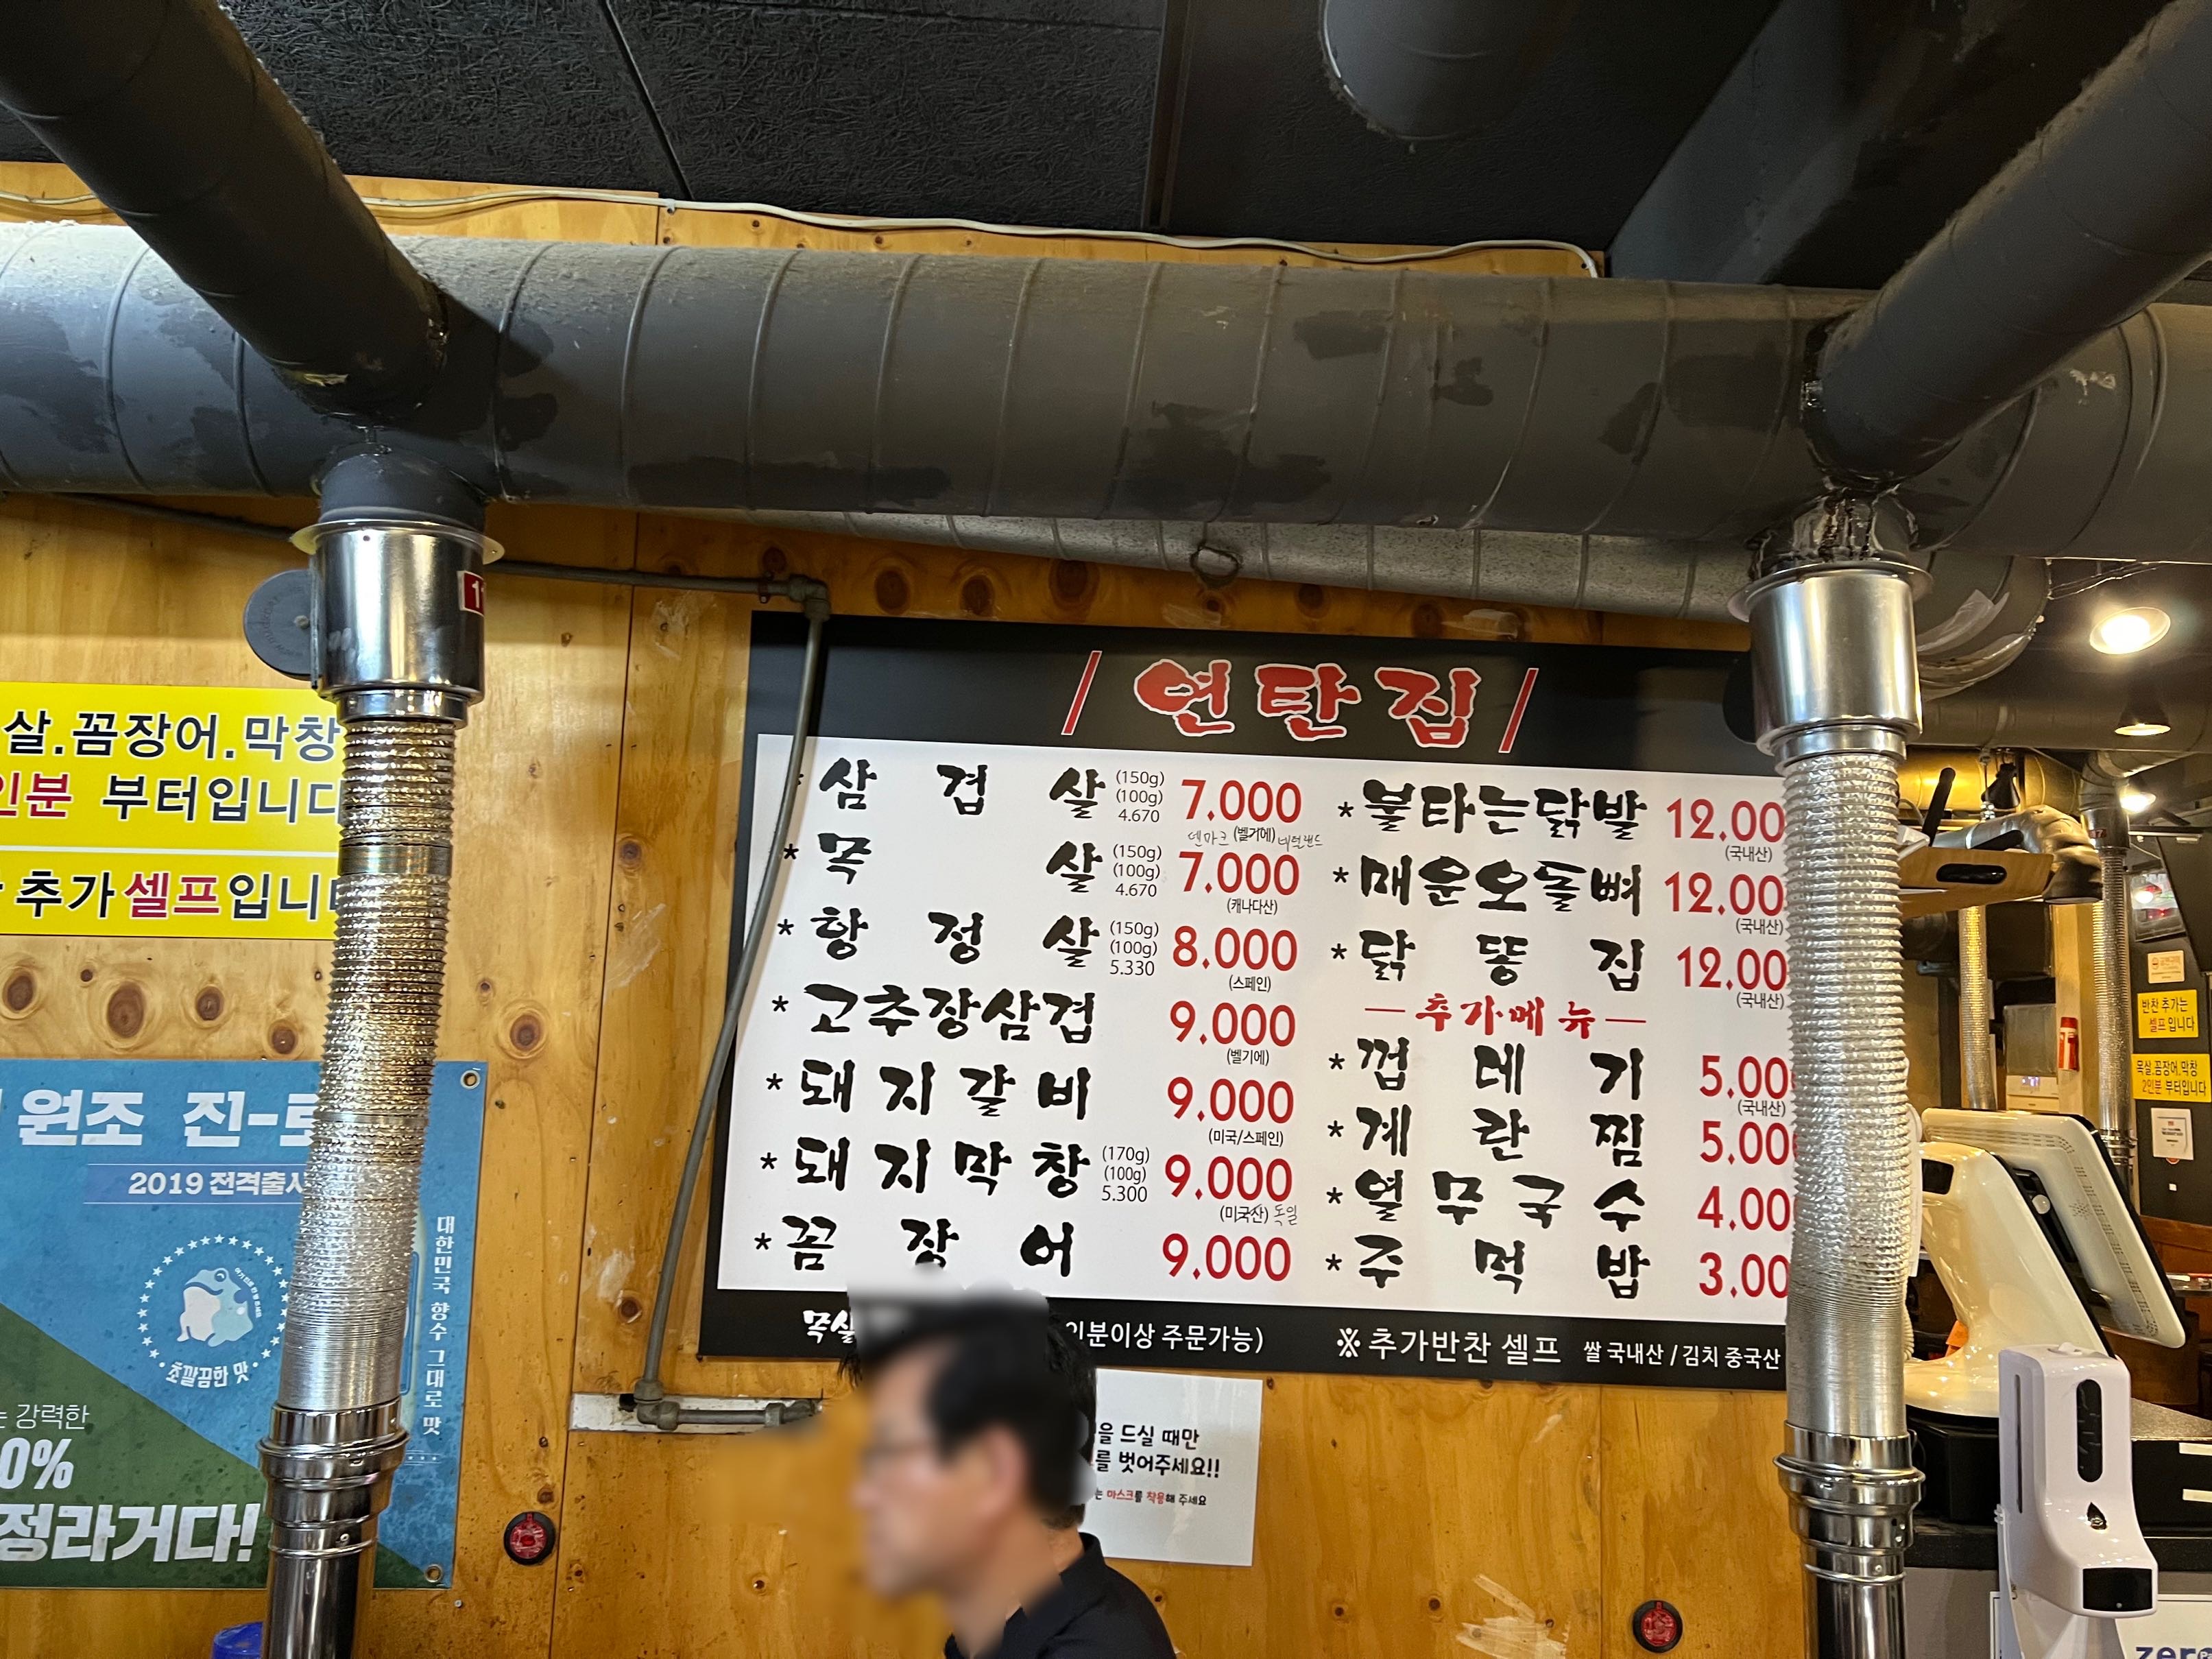 살.꼼장어.막창
인분 부터입니다
추가 셀프입니다
원조 진-로
2019 전격출시
초깔끔한 맛
대한민국 향수 그대로 맛
강력한
0%
정라거다!
11
/ 연탄집 /
* 삼겹살 (150g) (100g) 4.670 7.000
덴마크 (벨기에) 네덜란드
* 목살 (150g) (100g) 4.670 7.000
(캐나다산)
* 항정살 (150g) (100g) 5.330 8.000
(스페인)
* 고추장삼겹 9.000
(벨기에)
* 돼지갈비 9.000
(미국/스페인)
* 돼지막창 (170g) (100g) 5.300 9.000
(미국산) 독일
* 꼼장어 9.000
* 불타는닭발 12.00
(국내산)
* 매운오돌뼈 12.00
(국내산)
* 닭똥집 12.00
(국내산)
— 추가메뉴 —
* 껍데기 5.00
(국내산)
* 계란찜 5.000
* 열무국수 4.00
* 주먹밥 3.00
목살
인분이상 주문가능)
※ 추가반찬 셀프 쌀 국내산 / 김치 중국산
을 드실 때만
를 벗어주세요!!
는 마스크를 착용해 주세요
반찬 추가는
셀프 입니다
목살.꼼장어.막창
2인분 부터입니다
zero